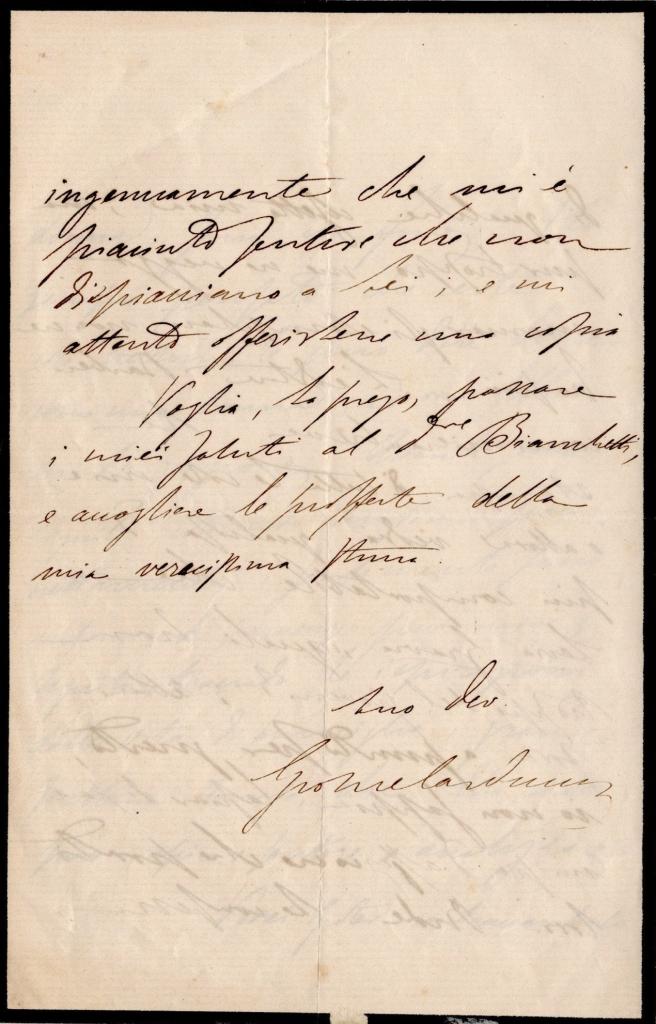 ingenuamente che mi è
piaciuto sentire che non
dispiacciano a Lei; e mi
attento offerirlene una copia
Voglia, la prego, passare
i miei saluti al dre Bianchetti,
e accogliere le profferte della
mia veracissima stima.
Suo dev.
Giosue Carducci